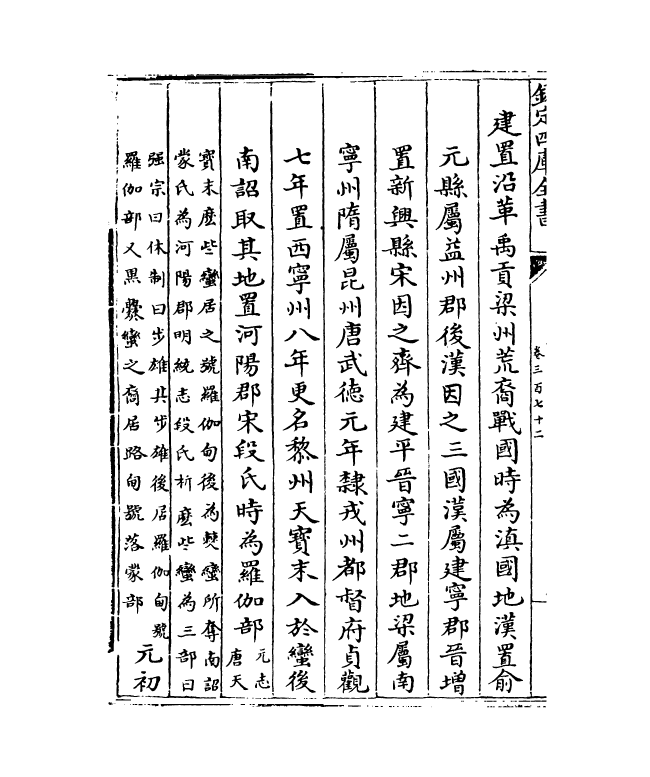 欽定四庫全書
卷三百七十二
建置沿革禹貢梁州荒裔戰國時為滇國地漢置俞
元縣屬益州郡後漢因之三國漢屬建寧郡晉增
置新興縣宋因之齊為建平晉寧二郡地梁屬南
寧州隋屬昆州唐武徳元年隸戎州都督府貞觀
七年置西寧州八年更名黎州天寳末入於蠻後
南詔取其地置河陽郡宋段氏時為羅伽部元志
唐天
寳末麽些蠻居之號羅伽甸後為僰蠻所奪南詔
蒙氏為河陽郡明統志段氏析麽些蠻為三部曰
强宗曰休制曰步雄其步雄後居羅伽甸號
羅伽部又黑爨蠻之裔居路甸號落蒙部
元初